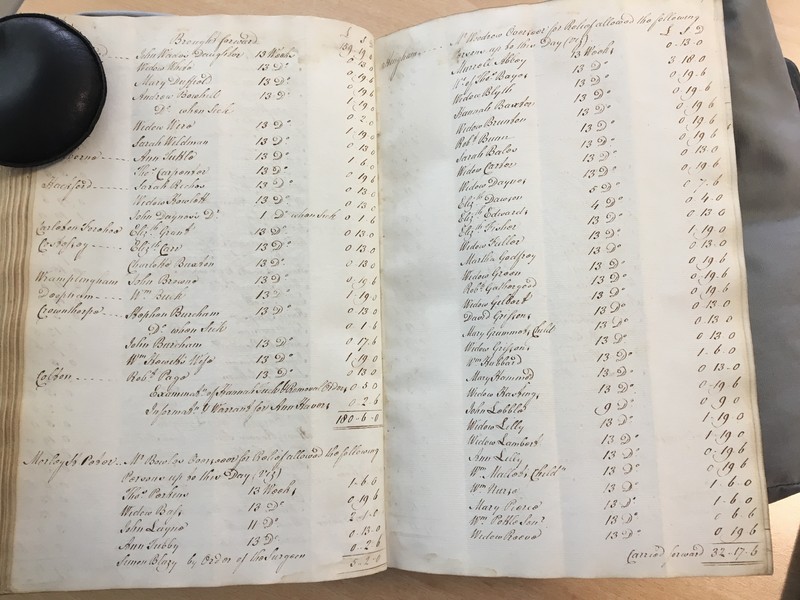 Brought forward
£ S D
John Warnes Daughter 13 Weeks
Widow Ward 13 Do 0 19 6
Mary Duffield 13 Do 0 19 6
Andrew Bowhill 13 Do 1 19 0
Do when sick 0 2 0
Widow Were 13 Do 1 19 0
Sarah Wildman 13 Do 0 13 0
Ann Tuttle 13 Do 1 6 0
Thos Carpenter 13 Do 0 19 6
Hackford Sarah Riches 13 Do 0 13 0
Widow Howlett 13 Do 0 13 0
John Daynes Do 1 Do when sick 0 1 6
Carleton Forehoe Elizth Grant 13 Do 0 13 0
Costessey Elizth Care 13 Do 0 13 0
Charlotte Buxton 13 Do 0 13 0
Wramplingham John Browne 13 Do 0 19 6
Deopham Wm Beck 13 Do 1 19 0
Crownthorpe Stephen Burcham 13 Do 0 13 0
Do when Sick 0 1 6
John Burcham 13 Do 0 17 6
Wm Howetts Wife 13 Do 1 19 0
Colton Robt Page 13 Do 0 13 0
Examinatn of Hannah & Removal Order 0 5 0
Informatn & Warrant for Ann 0 2 6
180-6-0
Morley St Peter Mr Bowles Overseer for Relief allowed the following
Persons up to this Day (viz)
Thos Perkins 13 Weeks 1 6 6
Widow Bale 13 Do 0 19 6
John Layne 11 Do 2 1 0
Ann Tubby 13 Do 0 13 0
Simon Blazy by Order of the Surgeon 0 2 6
Hingham Mr Woodrow Overseer for Relief allowed the following
Persons up to this Day (viz)
£ S D
Murrell Abbey 13 Weeks 0 13 0
Wd of Thos Bayes 13 Do 3 18 0
Widow Blyth 13 Do 0 19 6
Hannah Baxter 13 Do 0 19 6
Widow Brunton 13 Do 0 19 6
Robt Bunn 13 Do 0 19 6
Sarah Bales 13 Do 0 13 0
Widow Carter 13 Do 0 19 6
Widow Daynes 5 Do 0 7 6
Elizth Dawson 4 Do 0 4 0
Elizth Edwards 13 Do 0 13 0
Elizth Fisher 13 Do 1 19 0
Widow Fuller 13 Do 0 13 0
Martha Godfrey 13 Do 0 19 6
Widow Green 13 Do 0 19 6
Robt Gathergood 13 Do 0 19 6
Widow Gilbert 13 Do 0 13 0
David Gristons 13 Do 0 13 0
Mary Grummets Child 13 Do 0 13 0
Widow Gristons 13 Do 1 6 0
Wm Hubbard 13 Do 0 13 0
Mary Hammond 13 Do 0 19 6
Widow Hastings 13 Do 0 9 0
John Lebbell 9 Do 1 19 0
Widow Lilly 13 Do 1 19 0
Widow Lambert 13 Do 0 19 6
Ann 13 Do 0 19 6
Wm Childn 13 Do 1 6 0
Wm Nurse 13 Do 1 6 0
Mary Pierce 13 Do 1 6 0
Wm Senr 13 Do
Widow 13 Do 0 19 6
Carried forward 32-17-6